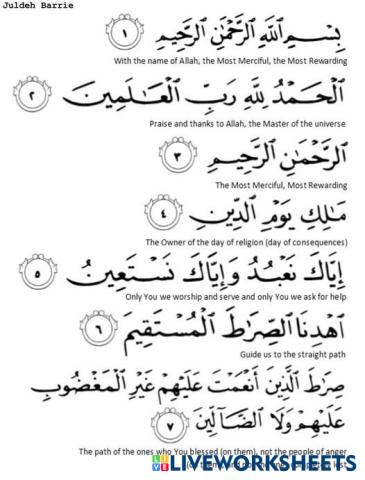 Juldeh Barrie
بِسْمِ اللَّهِ الرَّحْمَٰنِ الرَّحِيمِ ١
With the name of Allah, the Most Merciful, the Most Rewarding
الْحَمْدُ لِلَّهِ رَبِّ الْعَالَمِينَ ٢
Praise and thanks to Allah, the Master of the universe
الرَّحْمَٰنِ الرَّحِيمِ ٣
The Most Merciful, Most Rewarding
مَالِكِ يَوْمِ الدِّينِ ٤
The Owner of the day of religion (day of consequences)
إِيَّاكَ نَعْبُدُ وَإِيَّاكَ نَسْتَعِينُ ٥
Only You we worship and serve and only You we ask for help
اهْدِنَا الصِّرَاطَ الْمُسْتَقِيمَ ٦
Guide us to the straight path
صِرَاطَ الَّذِينَ أَنْعَمْتَ عَلَيْهِمْ غَيْرِ الْمَغْضُوبِ
عَلَيْهِمْ وَلَا الضَّالِّينَ ٧
The path of the ones who You blessed (on them), not the people of anger
LIVEWORKSHEETS